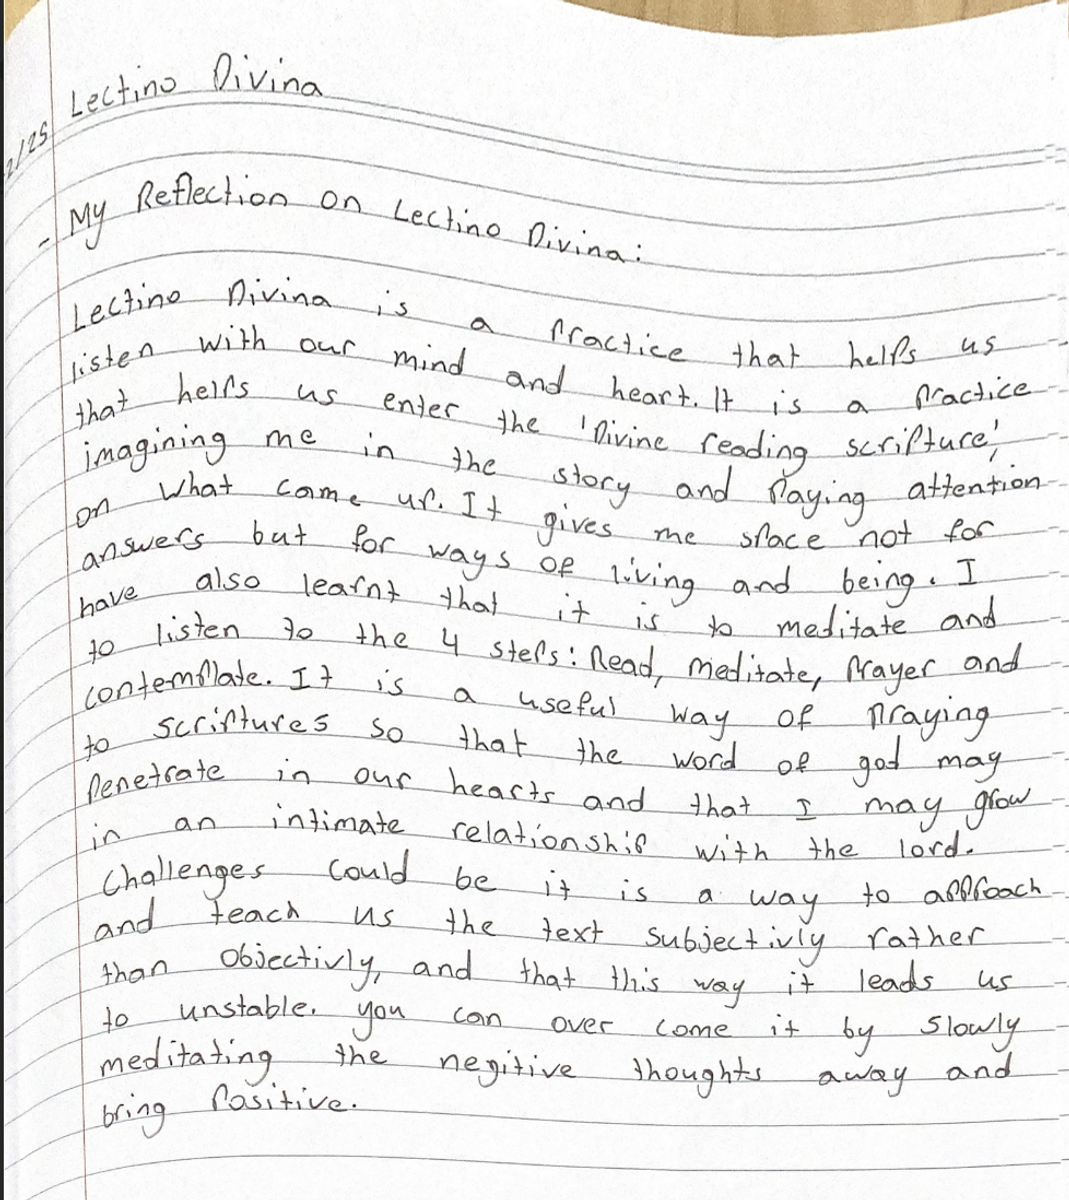 Lectino Divina
2/25
- My Reflection on Lectino Divina:
Lectino Divina is a practice that helps us
listen with our mind and heart. It is a practice
that helps us enter the 'Divine reading scripture,'
imagining me in the story and paying attention
on what came up. It gives me space not for
answers but for ways of living and being. I
have also learnt that it is to meditate and
to listen to the 4 steps: Read, meditate, prayer and
contemplate. It is a useful way of praying
to scriptures so that the word of god may
penetrate in our hearts and that I may grow
in an intimate relationship with the lord.
Challenges could be it is a way to approach
and teach us the text subjectivly rather
than objectivly, and that this way it leads us
to unstable. you can over come it by slowly
meditating the negitive thoughts away and
bring positive.